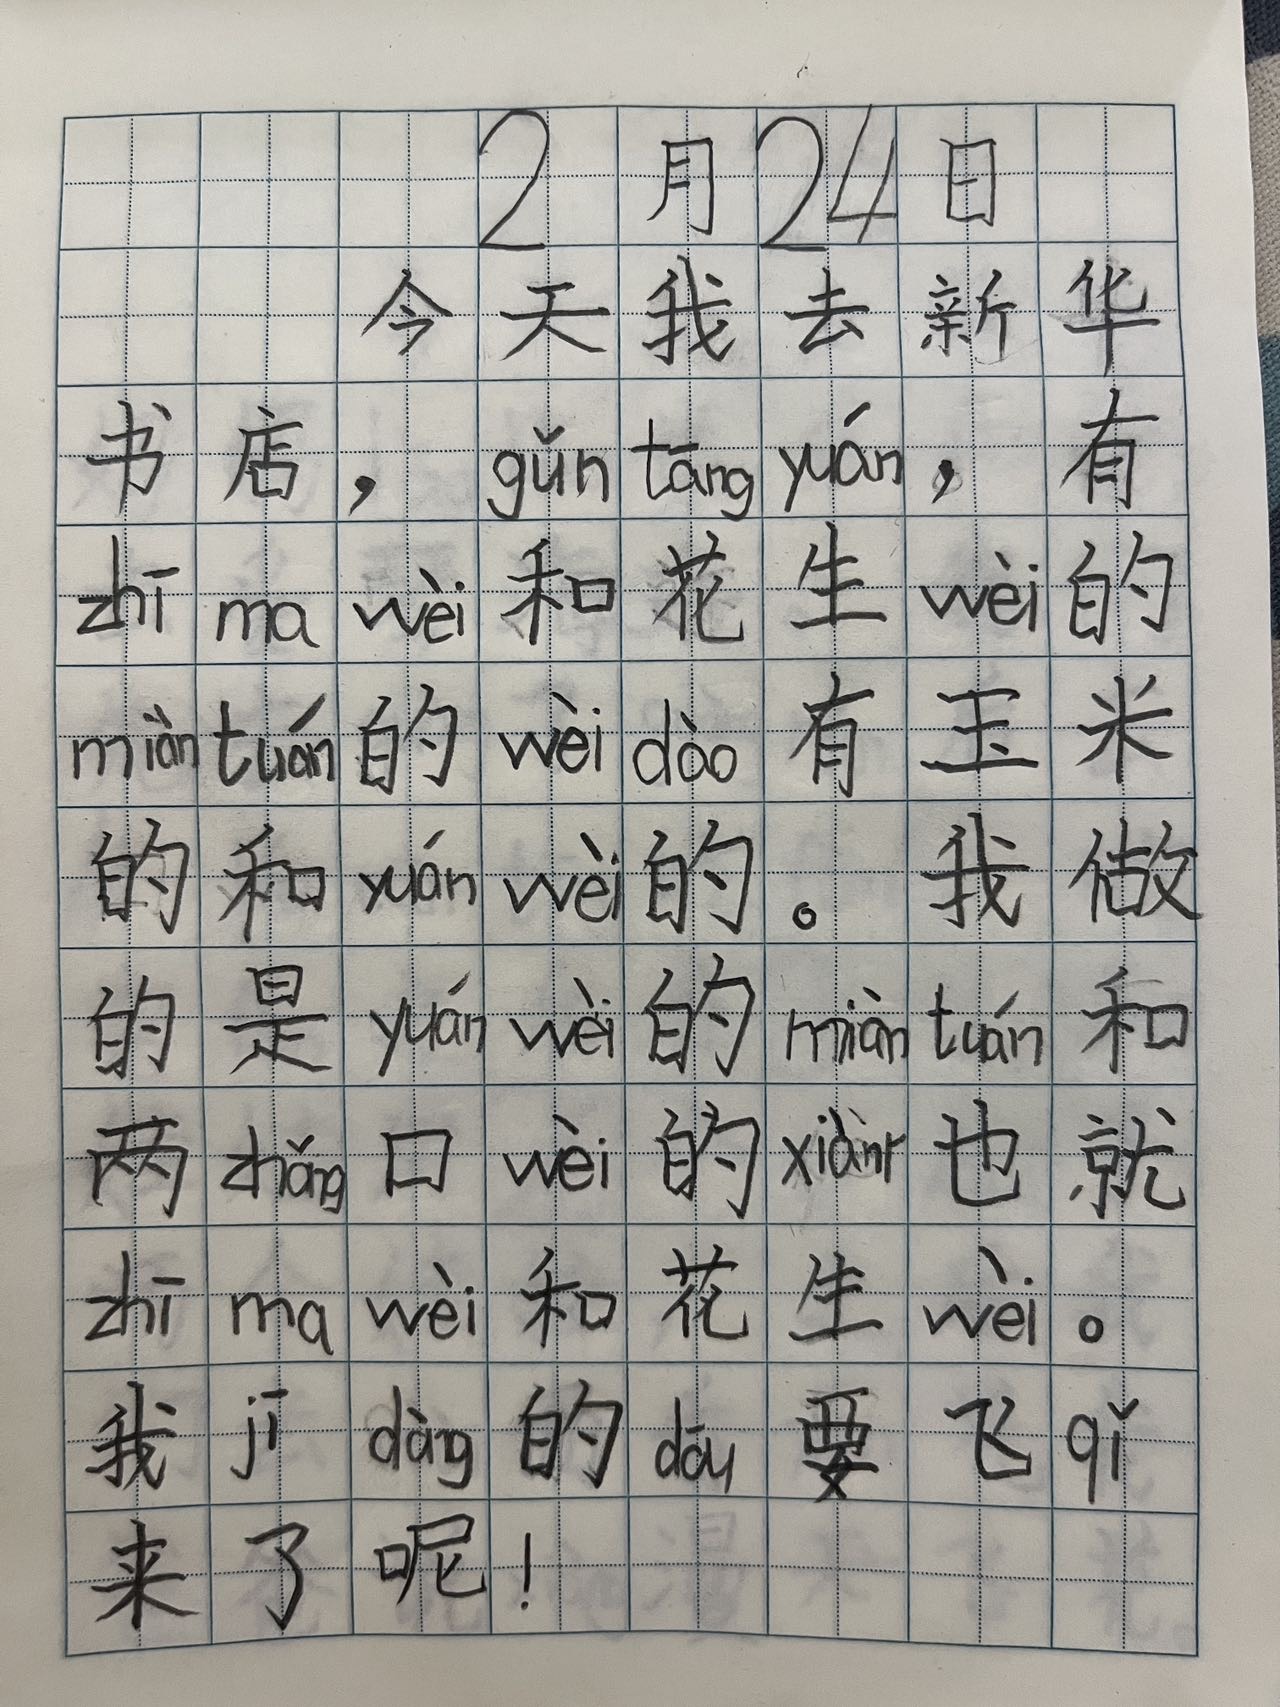 2月24日
今天我去新华
书店，gǔn tāng yuán，有
zhī ma wèi和花生wèi的
miàn tuán的wèi dào有玉米
的和yuán wèi的。我做
的是yuán wèi的miàn tuán和
两zhǎng口wèi的xiànr也就
zhī ma wèi和花生wèi。
我jī dàng的dōu要飞qǐ
来了呢！